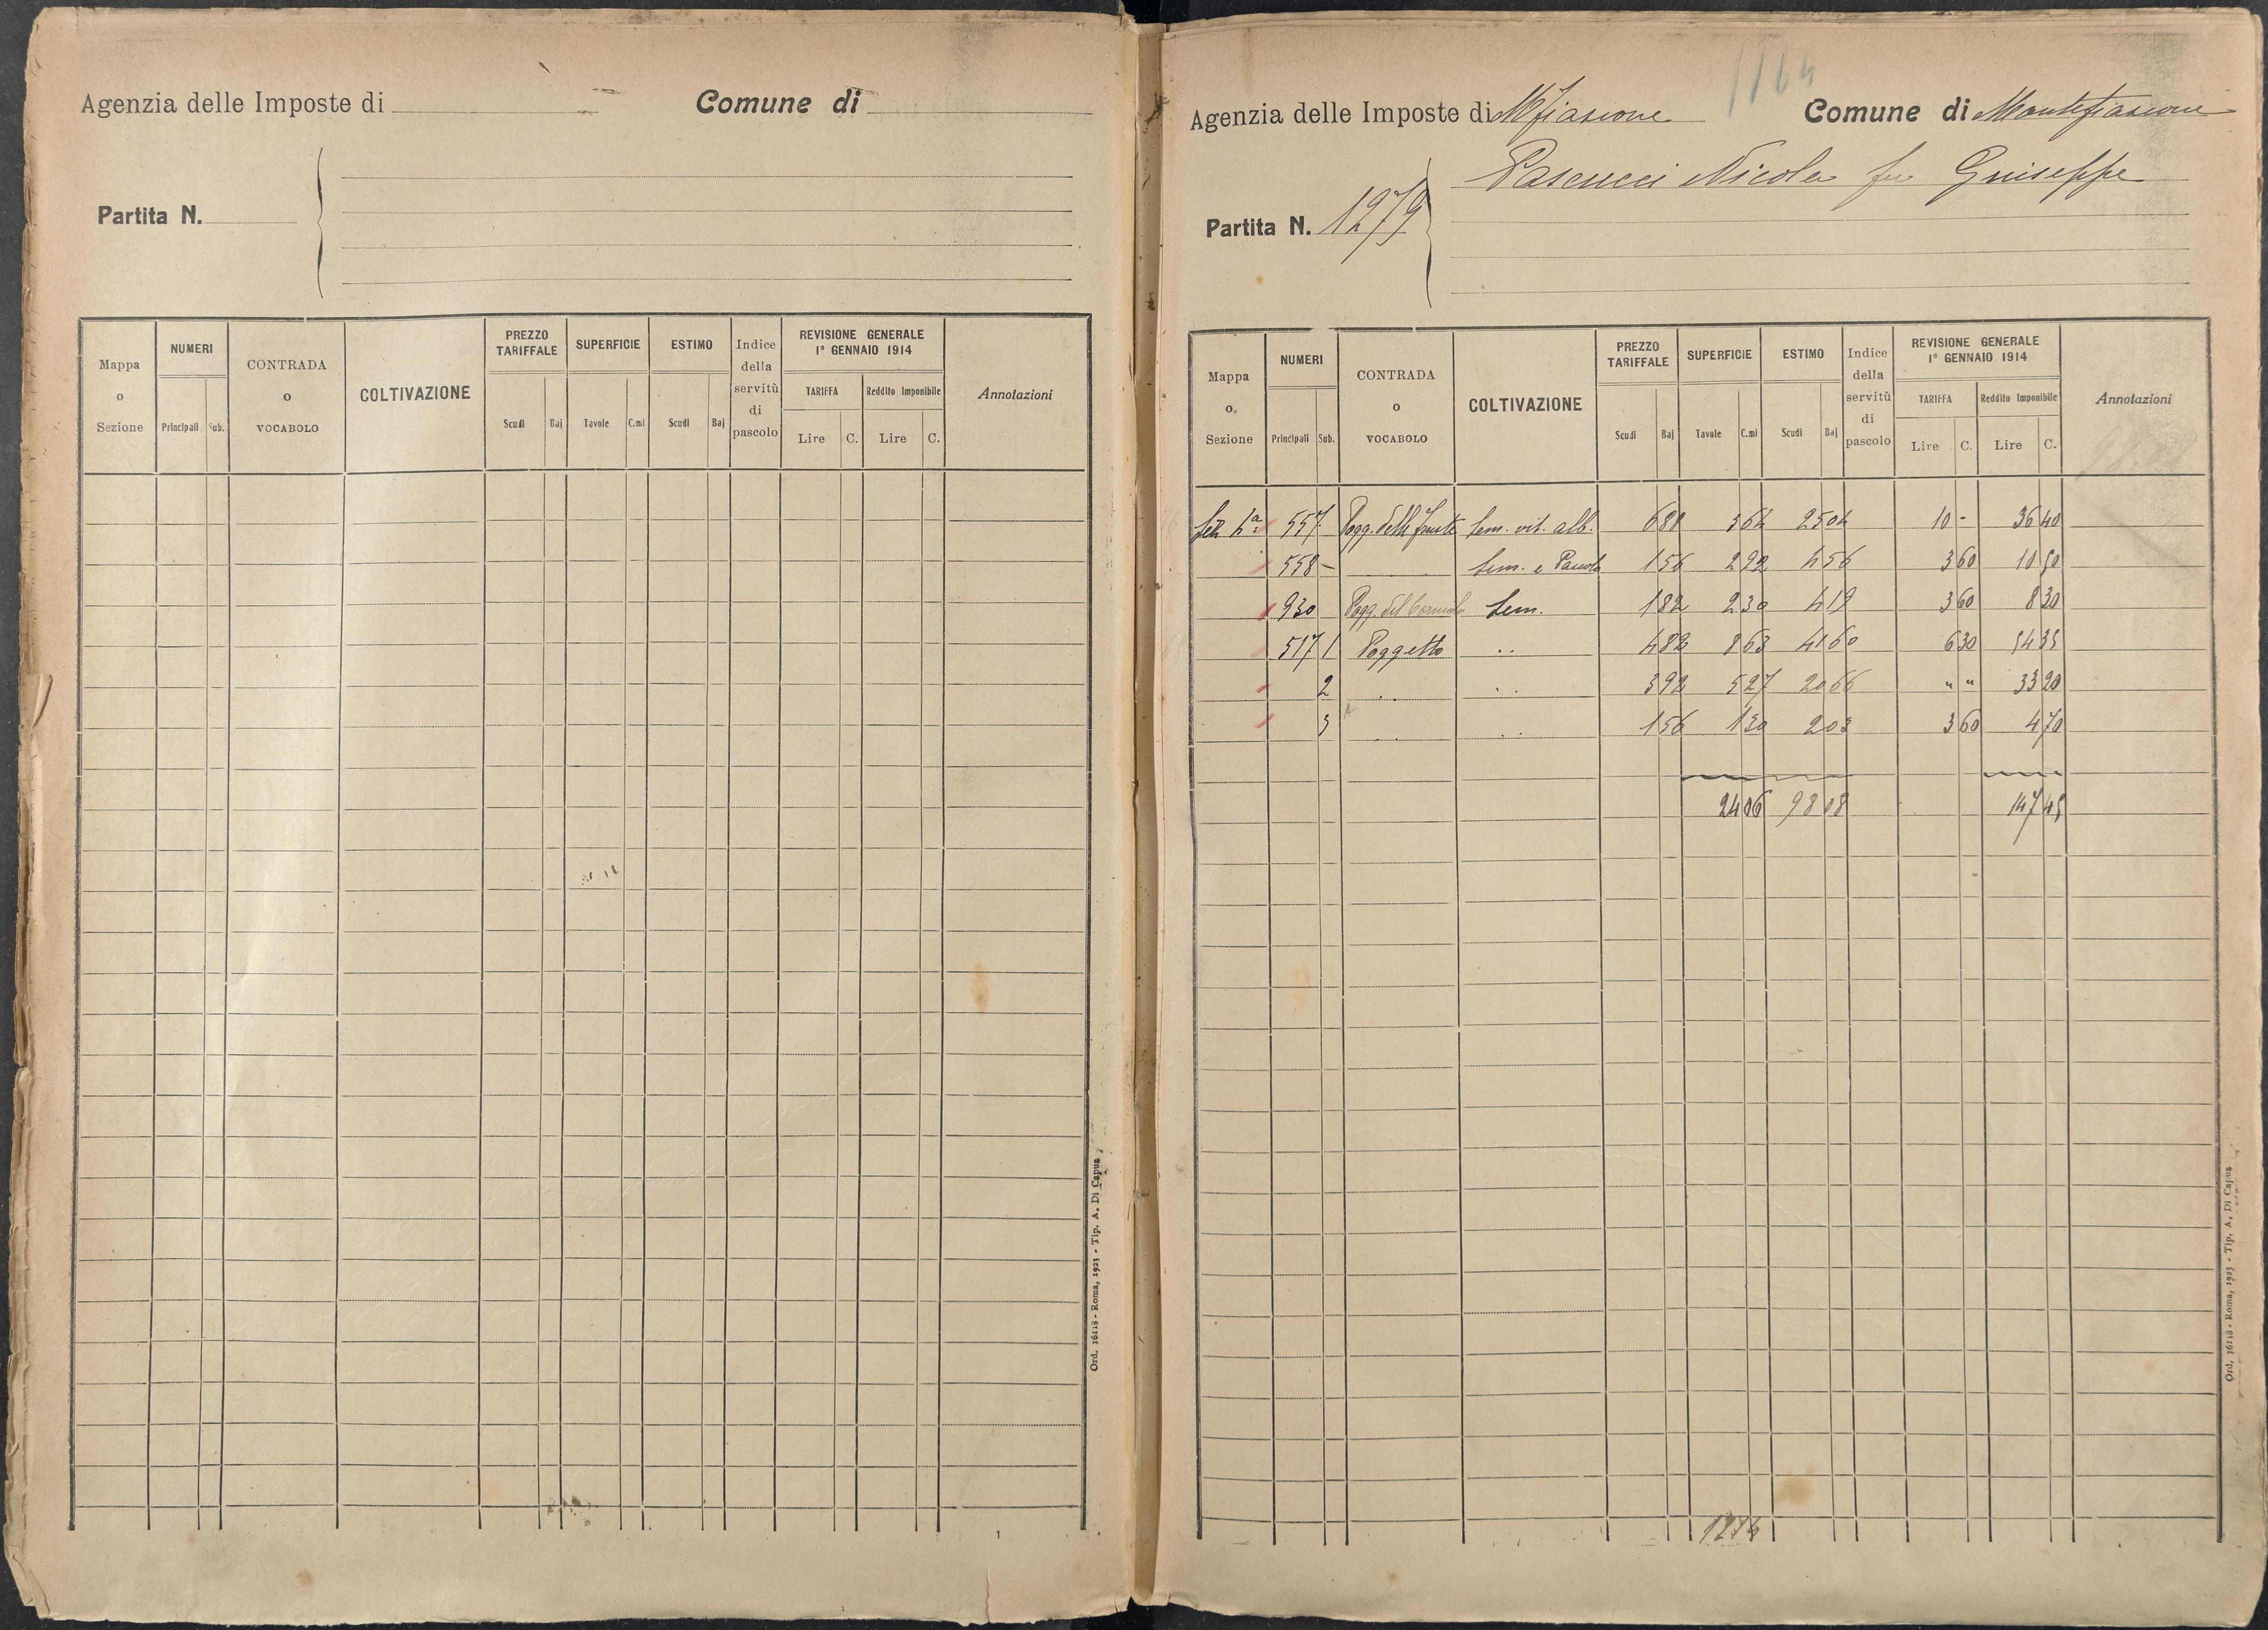 Agenzia delle Imposte di
Comune di
Partita N.
Mappa o Sezione
NUMERI
Principali Sub.
CONTRADA o VOCABOLO
COLTIVAZIONE
PREZZO TARIFFALE
Scudi Baj
SUPERFICIE
Tavole C.mi
ESTIMO
Scudi Baj
Indice della servitù di pascolo
REVISIONE GENERALE
1° GENNAIO 1914
TARIFFA Reddito Imponibile
Lire C. Lire C.
Annotazioni
Ord. 16118 - Roma, 1923 - Tip. A. Di Capua
1
1164
Agenzia delle Imposte di Mfiascone Comune di Montefiascone
Pascucci Nicola fu Giuseppe
Partita N. 1279
Mappa o Sezione
NUMERI
Principali Sub.
CONTRADA o VOCABOLO
COLTIVAZIONE
PREZZO TARIFFALE
Scudi Baj
SUPERFICIE
Tavole C.mi
ESTIMO
Scudi Baj
Indice della servitù di pascolo
REVISIONE GENERALE
1° GENNAIO 1914
TARIFFA Reddito Imponibile
Lire C. Lire C.
Annotazioni
98.08
557 Pogg. delle Sem. vit. alb. 6 88 3 64 25 04 10 - 36 40
558 - Sem. e 1 56 2 92 4 56 3 60 10 50
930 Pogg. del Sem. 1 82 2 30 4 19 3 60 8 30
517 1 Poggetto .. 4 82 8 63 41 60 6 30 54 35
2 .. .. 3 92 5 27 20 66 " " 33 20
3 .. .. 1 56 1 30 2 03 3 60 4 70
24 06 98 08 147 45
1274
Ord. 16118 - Roma, 1923 - Tip. A. Di Capua